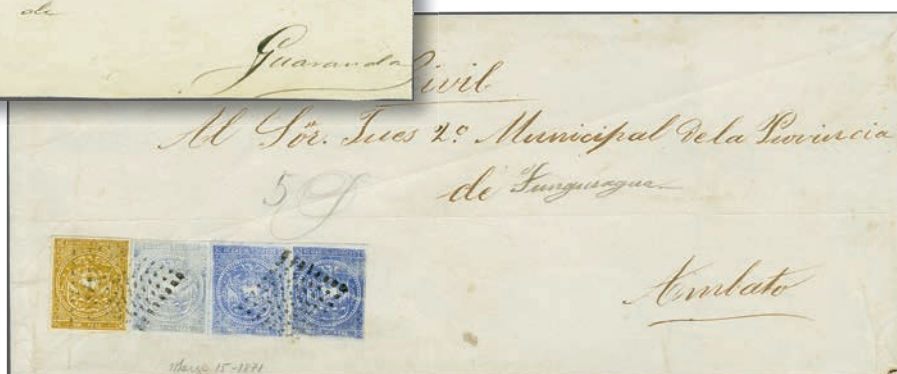 de
Guaranda
Civil
Al Sór. Jues 2º Municipal de la Provincia
de Tunguragua
5
Ambato
Marzo 15-1871